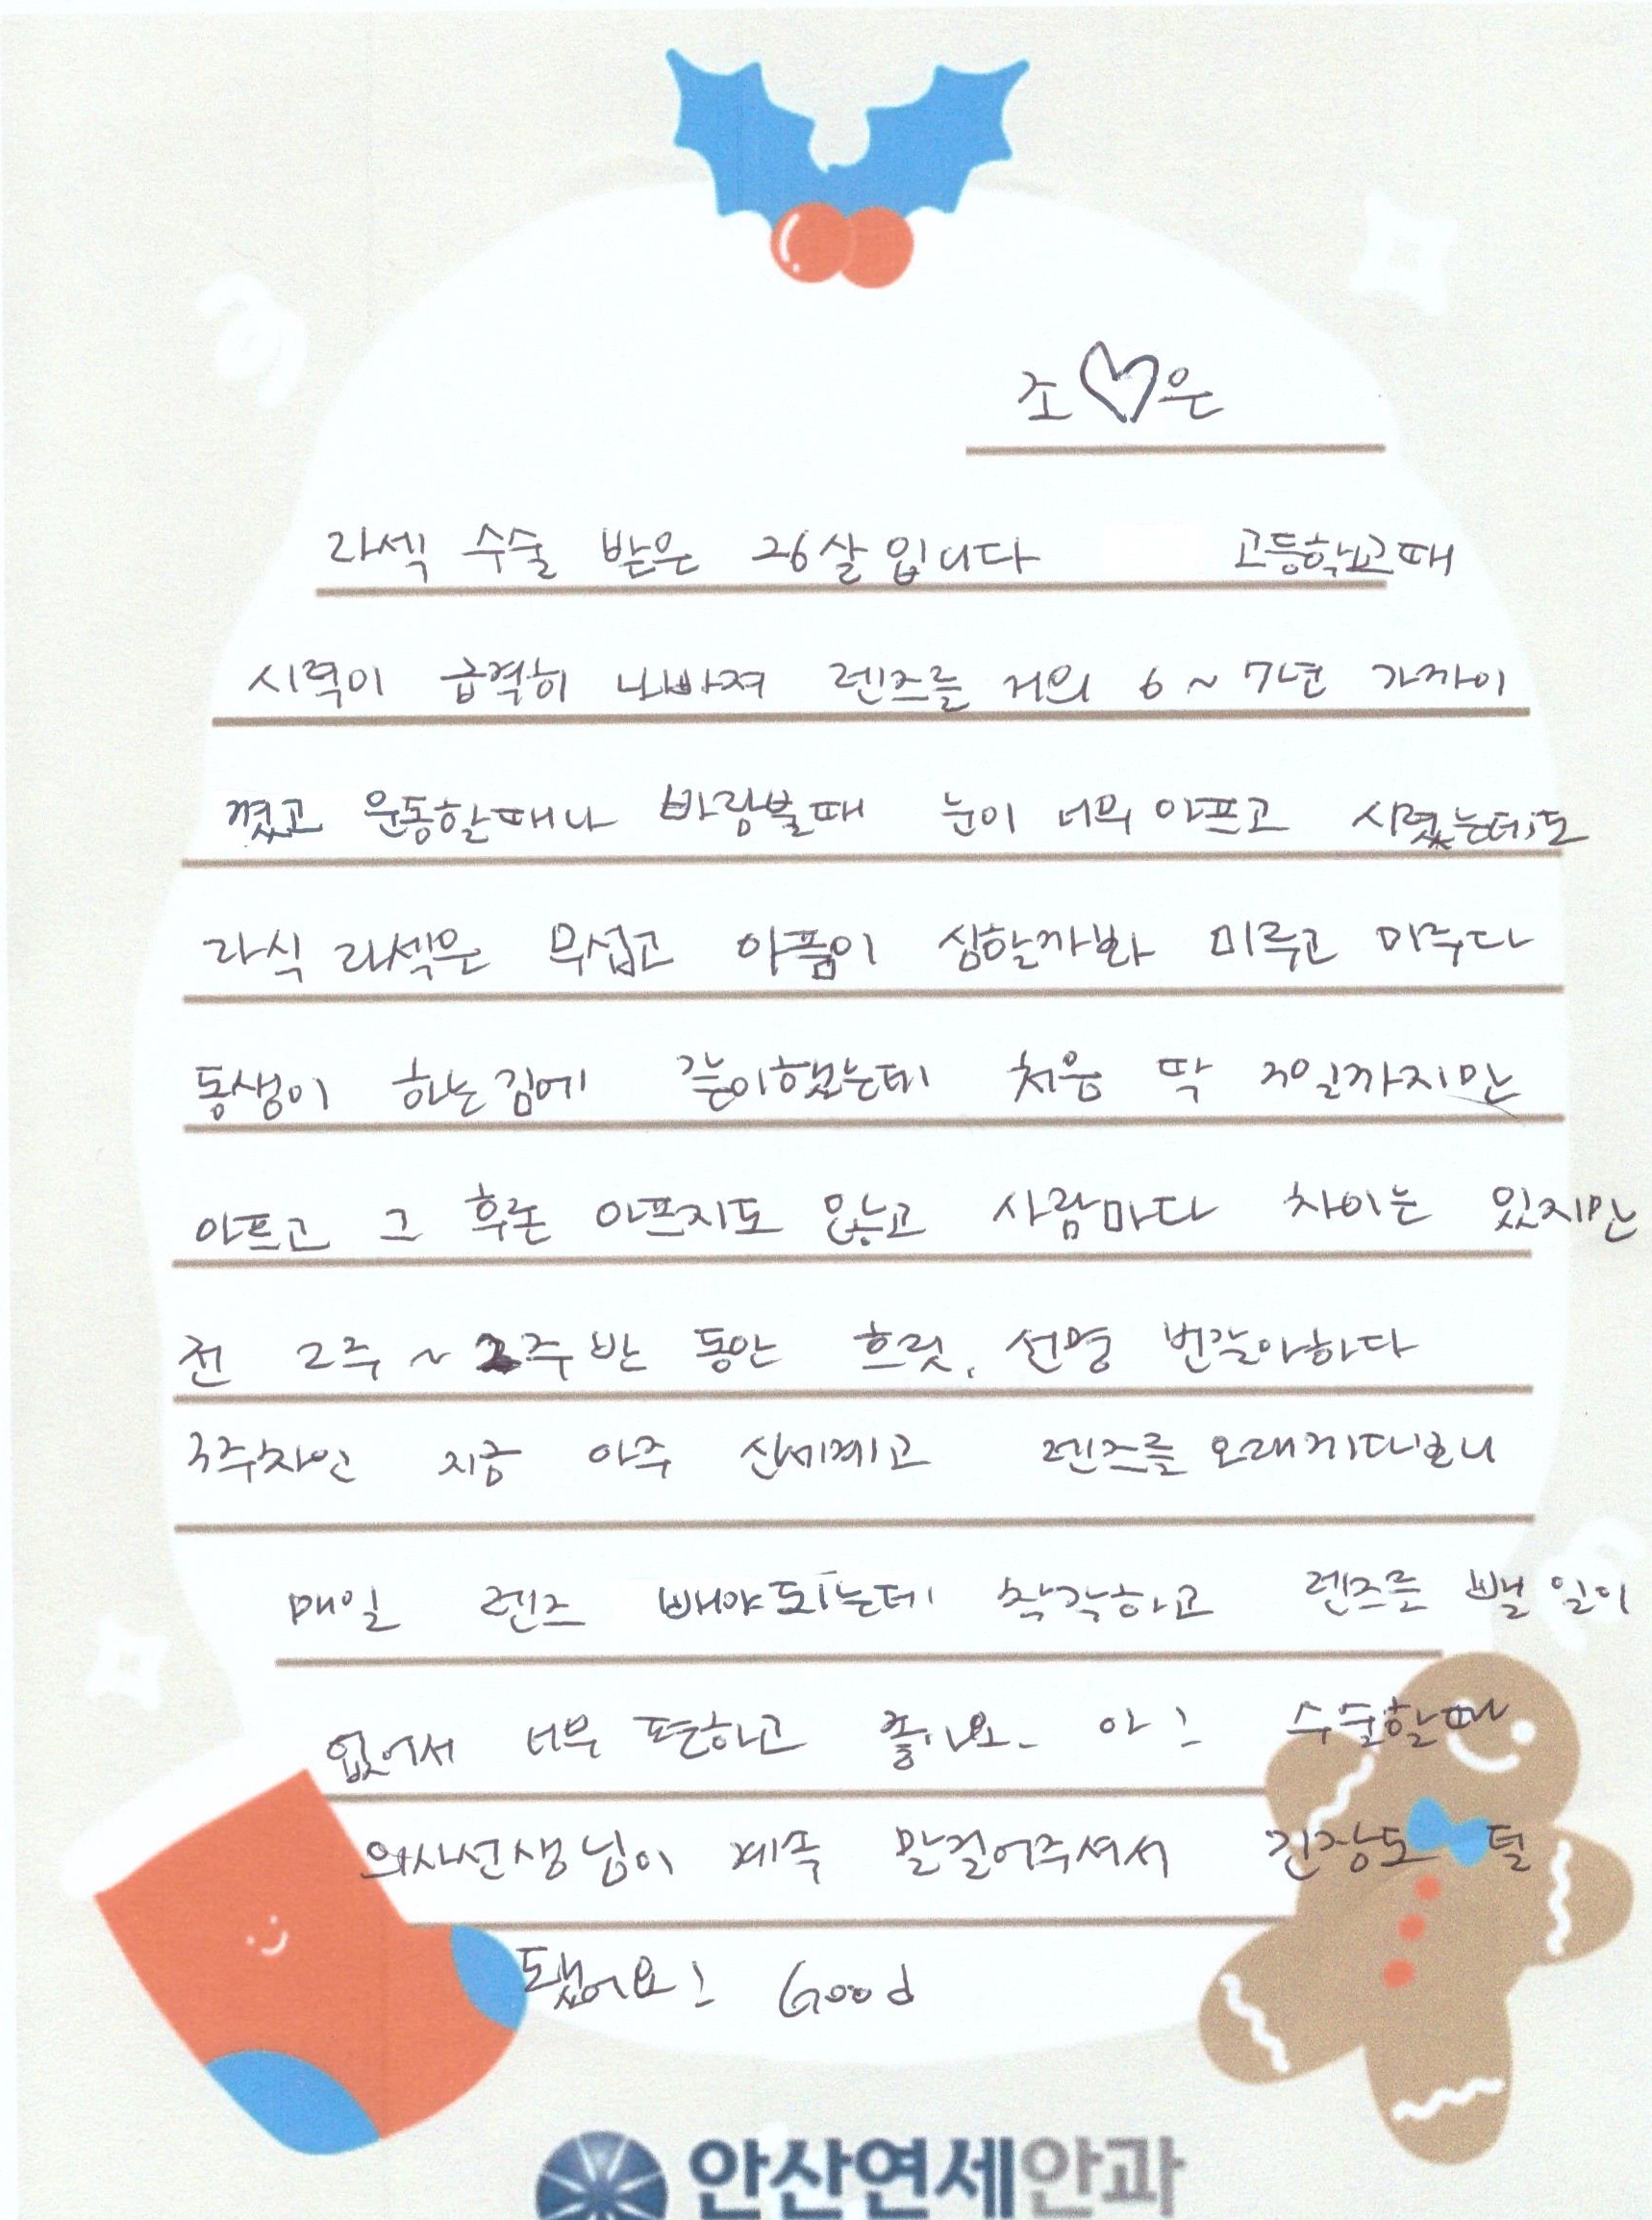 조♡은
라섹 수술 받은 26살입니다 고등학교때
시력이 급격히 나빠져 렌즈를 거의 6~7년 가까이
꼈고 운동할때나 바람불때 눈이 너무 아프고 시렸는데도
라식 라섹은 무섭고 아픔이 심할까봐 미루고 미루다
동생이 하는김에 같이했는데 처음 딱 3일까지만
아프고 그 후론 아프지도 않고 사람마다 차이는 있지만
전 2주~2주반 동안 흐릿, 선명 번갈아하다
3주차인 지금 아주 신세계고 렌즈를 오래끼다보니
매일 렌즈 빼야되는데 착각하고 렌즈를 뺄 일이
없어서 너무 편하고 좋아요. 아! 수술할때
의사선생님이 계속 말걸어주셔서 긴장도 덜
됐어요! Good
안산연세안과